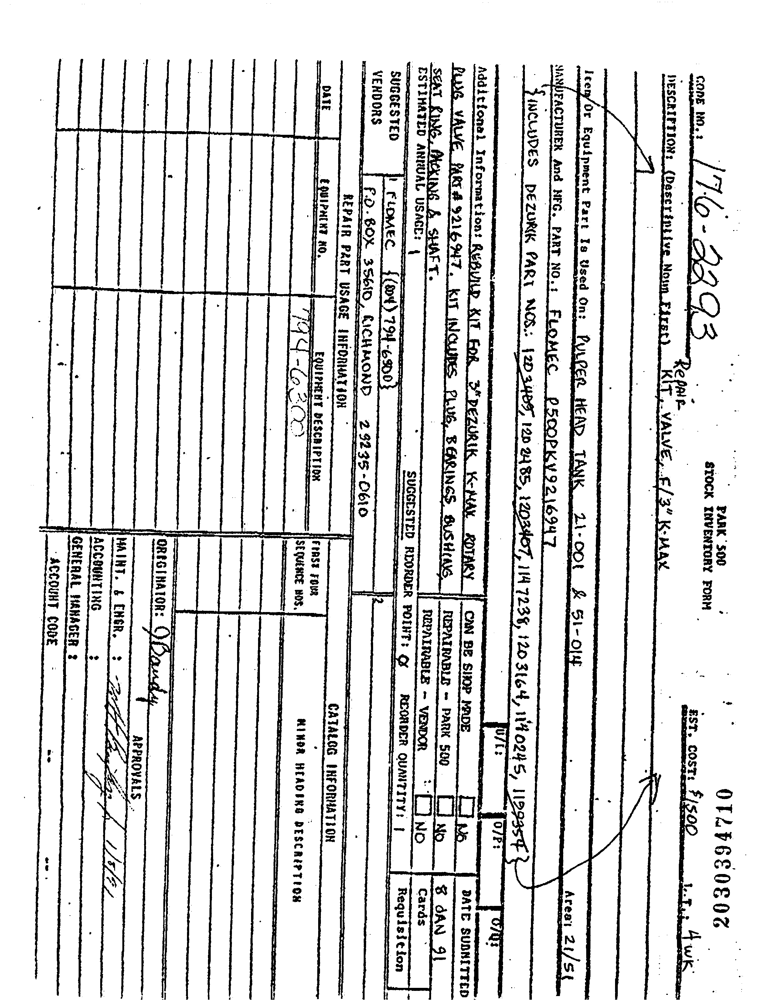 2030394710
PARK 500
STOCK INVENTORY FORM
CODE NO.: 176-2293
EST. COST: $1500 L.T.: 4 WK
DESCRIPTION: (Descriptive Noun First) REPAIR KIT, VALVE, F/3" K-MAX
Item/Or Equipment Part Is Used On: PULPER HEAD TANK 21-001 & 51-014 Area: 21/51
MANUFACTURER And MFG. PART NO.: FLOMEC P500PKV9216947
{INCLUDES DEZURIK PART NOS.: 1203405, 1202485, 1203407, 1147238, 1203164, 1140245, 1199354}
U/I: O/P: O/Q:
Additional Information: REBUILD KIT FOR 3" DEZURIK K-MAX ROTARY
PLUG VALVE PART # 9216947. KIT INCLUDES PLUG, BEARINGS, BUSHING,
SEAT RING, PACKING & SHAFT.
CAN BE SHOP MADE NO
REPAIRABLE - PARK 500 NO
REPAIRABLE - VENDOR : NO
DATE SUBMITTED
8 JAN 91
Cards
Requisition
ESTIMATED ANNUAL USAGE: 1 SUGGESTED REORDER POINT: 0 REORDER QUANTITY: 1
SUGGESTED VENDORS
1 FLOMEC {(804) 794-6300}
P.O. BOX 35610, RICHMOND 23235-0610
2
REPAIR PART USAGE INFORMATION
CATALOG INFORMATION
DATE EQUIPMENT NO. EQUIPMENT DESCRIPTION
FIRST FOUR SEQUENCE NOS. MINOR HEADING DESCRIPTION
794-6300
APPROVALS
ORIGINATOR: J Bandy
MAINT. & ENGR. : 1/8/91
ACCOUNTING :
GENERAL MANAGER :
ACCOUNT CODE -- --